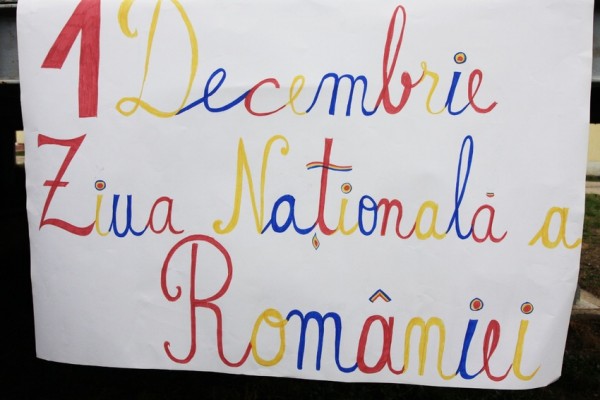 1 Decembrie
Ziua Națională a
României